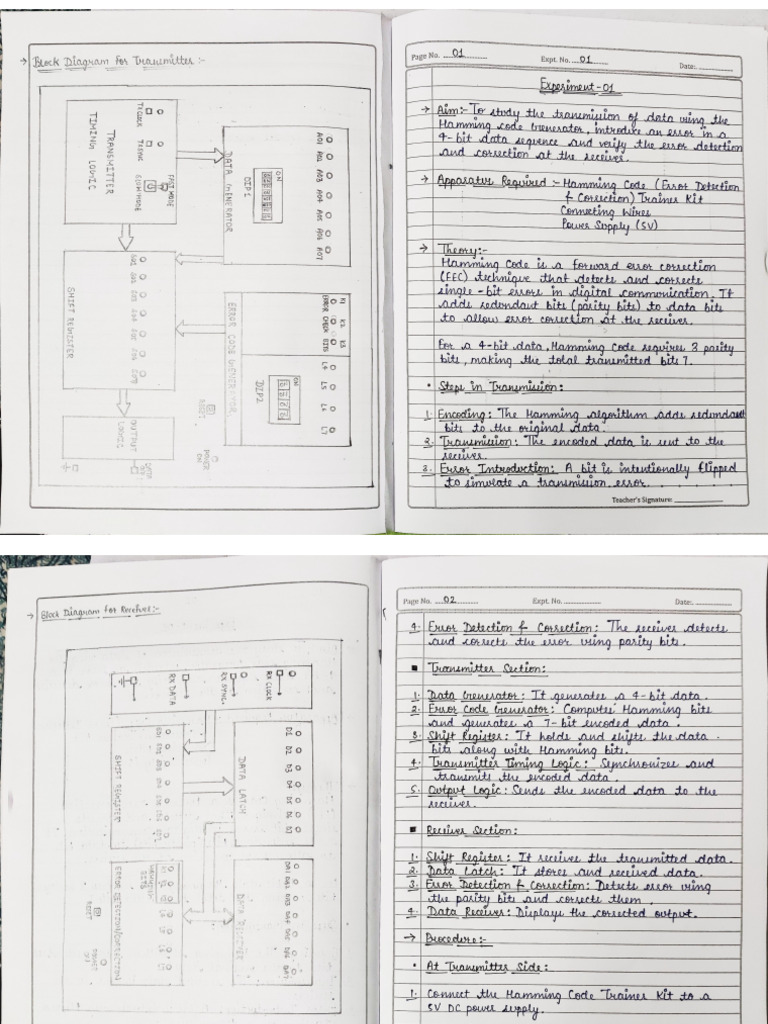 → Block Diagram for Transmitter :-
TX CLOCK
TX SYNC
FAST MODE
SLOW MODE
TRANSMITTER
TIMING LOGIC
AO1 AO2 AO3 AO4 AO5 AO6 AO7
ON
DIP1
DATA GENERATOR
SHIFT REGISTER
K1 K2 K3
ERROR CHECK BITS
L4 L5 L6 L7
ON
DIP2
ERROR CODE GENERATOR
RESET
OUTPUT
LOGIC
POWER
ON
Page No. 01
Expt. No. 01
Date:
Experiment-01
→ Aim:- To study the transmission of data using the
Hamming code Generator, introduce an error in a
4-bit data sequence and verify the error detection
and correction at the receiver.
→ Apparatus Required :- Hamming Code (Error Detection
& Correction) Trainer Kit
Connecting Wires
Power Supply (5V)
→ Theory:-
Hamming Code is a forward error correction
(FEC) technique that detects and corrects
single-bit errors in digital communication. It
adds redundant bits (parity bits) to data bits
to allow error correction at the receiver.
For a 4-bit data, Hamming Code requires 3 parity
bits, making the total transmitted bits 7.
• Steps in Transmission:
1. Encoding: The Hamming algorithm adds redundant
bits to the original data.
2. Transmission: The encoded data is sent to the
receiver.
3. Error Introduction: A bit is intentionally flipped
to simulate a transmission error.
Teacher's Signature:
→ Block Diagram for Receiver:-
RX CLOCK
RX SYNC.
RX DATA
D1 D2 D3 D4 D5 D6 D7
DATA LATCH
SHIFT REGISTER
HAMMING
BITS
ERROR DETECTION/CORRECTION
RESET
Page No. 02
Expt. No.
Date:
4. Error Detection & Correction: The receiver detects
and corrects the error using parity bits.
▪ Transmitter Section:
1. Data Generator: It generates a 4-bit data.
2. Error Code Generator: Computes Hamming bits
and generates a 7-bit encoded data.
3. Shift Register: It holds and shifts the data
bits along with Hamming bits.
4. Transmitter Timing Logic: Synchronizes and
transmits the encoded data.
5. Output Logic: Sends the encoded data to the
receiver.
▪ Receiver Section:
1. Shift Register: It receives the transmitted data.
2. Data Latch: It stores and received data.
3. Error Detection & Correction: Detects error using
the parity bits and corrects them.
4. Data Receiver: Displays the corrected output.
→ Procedure:-
• At Transmitter Side:
1. Connect the Hamming Code Trainer Kit to a
5V DC power supply.